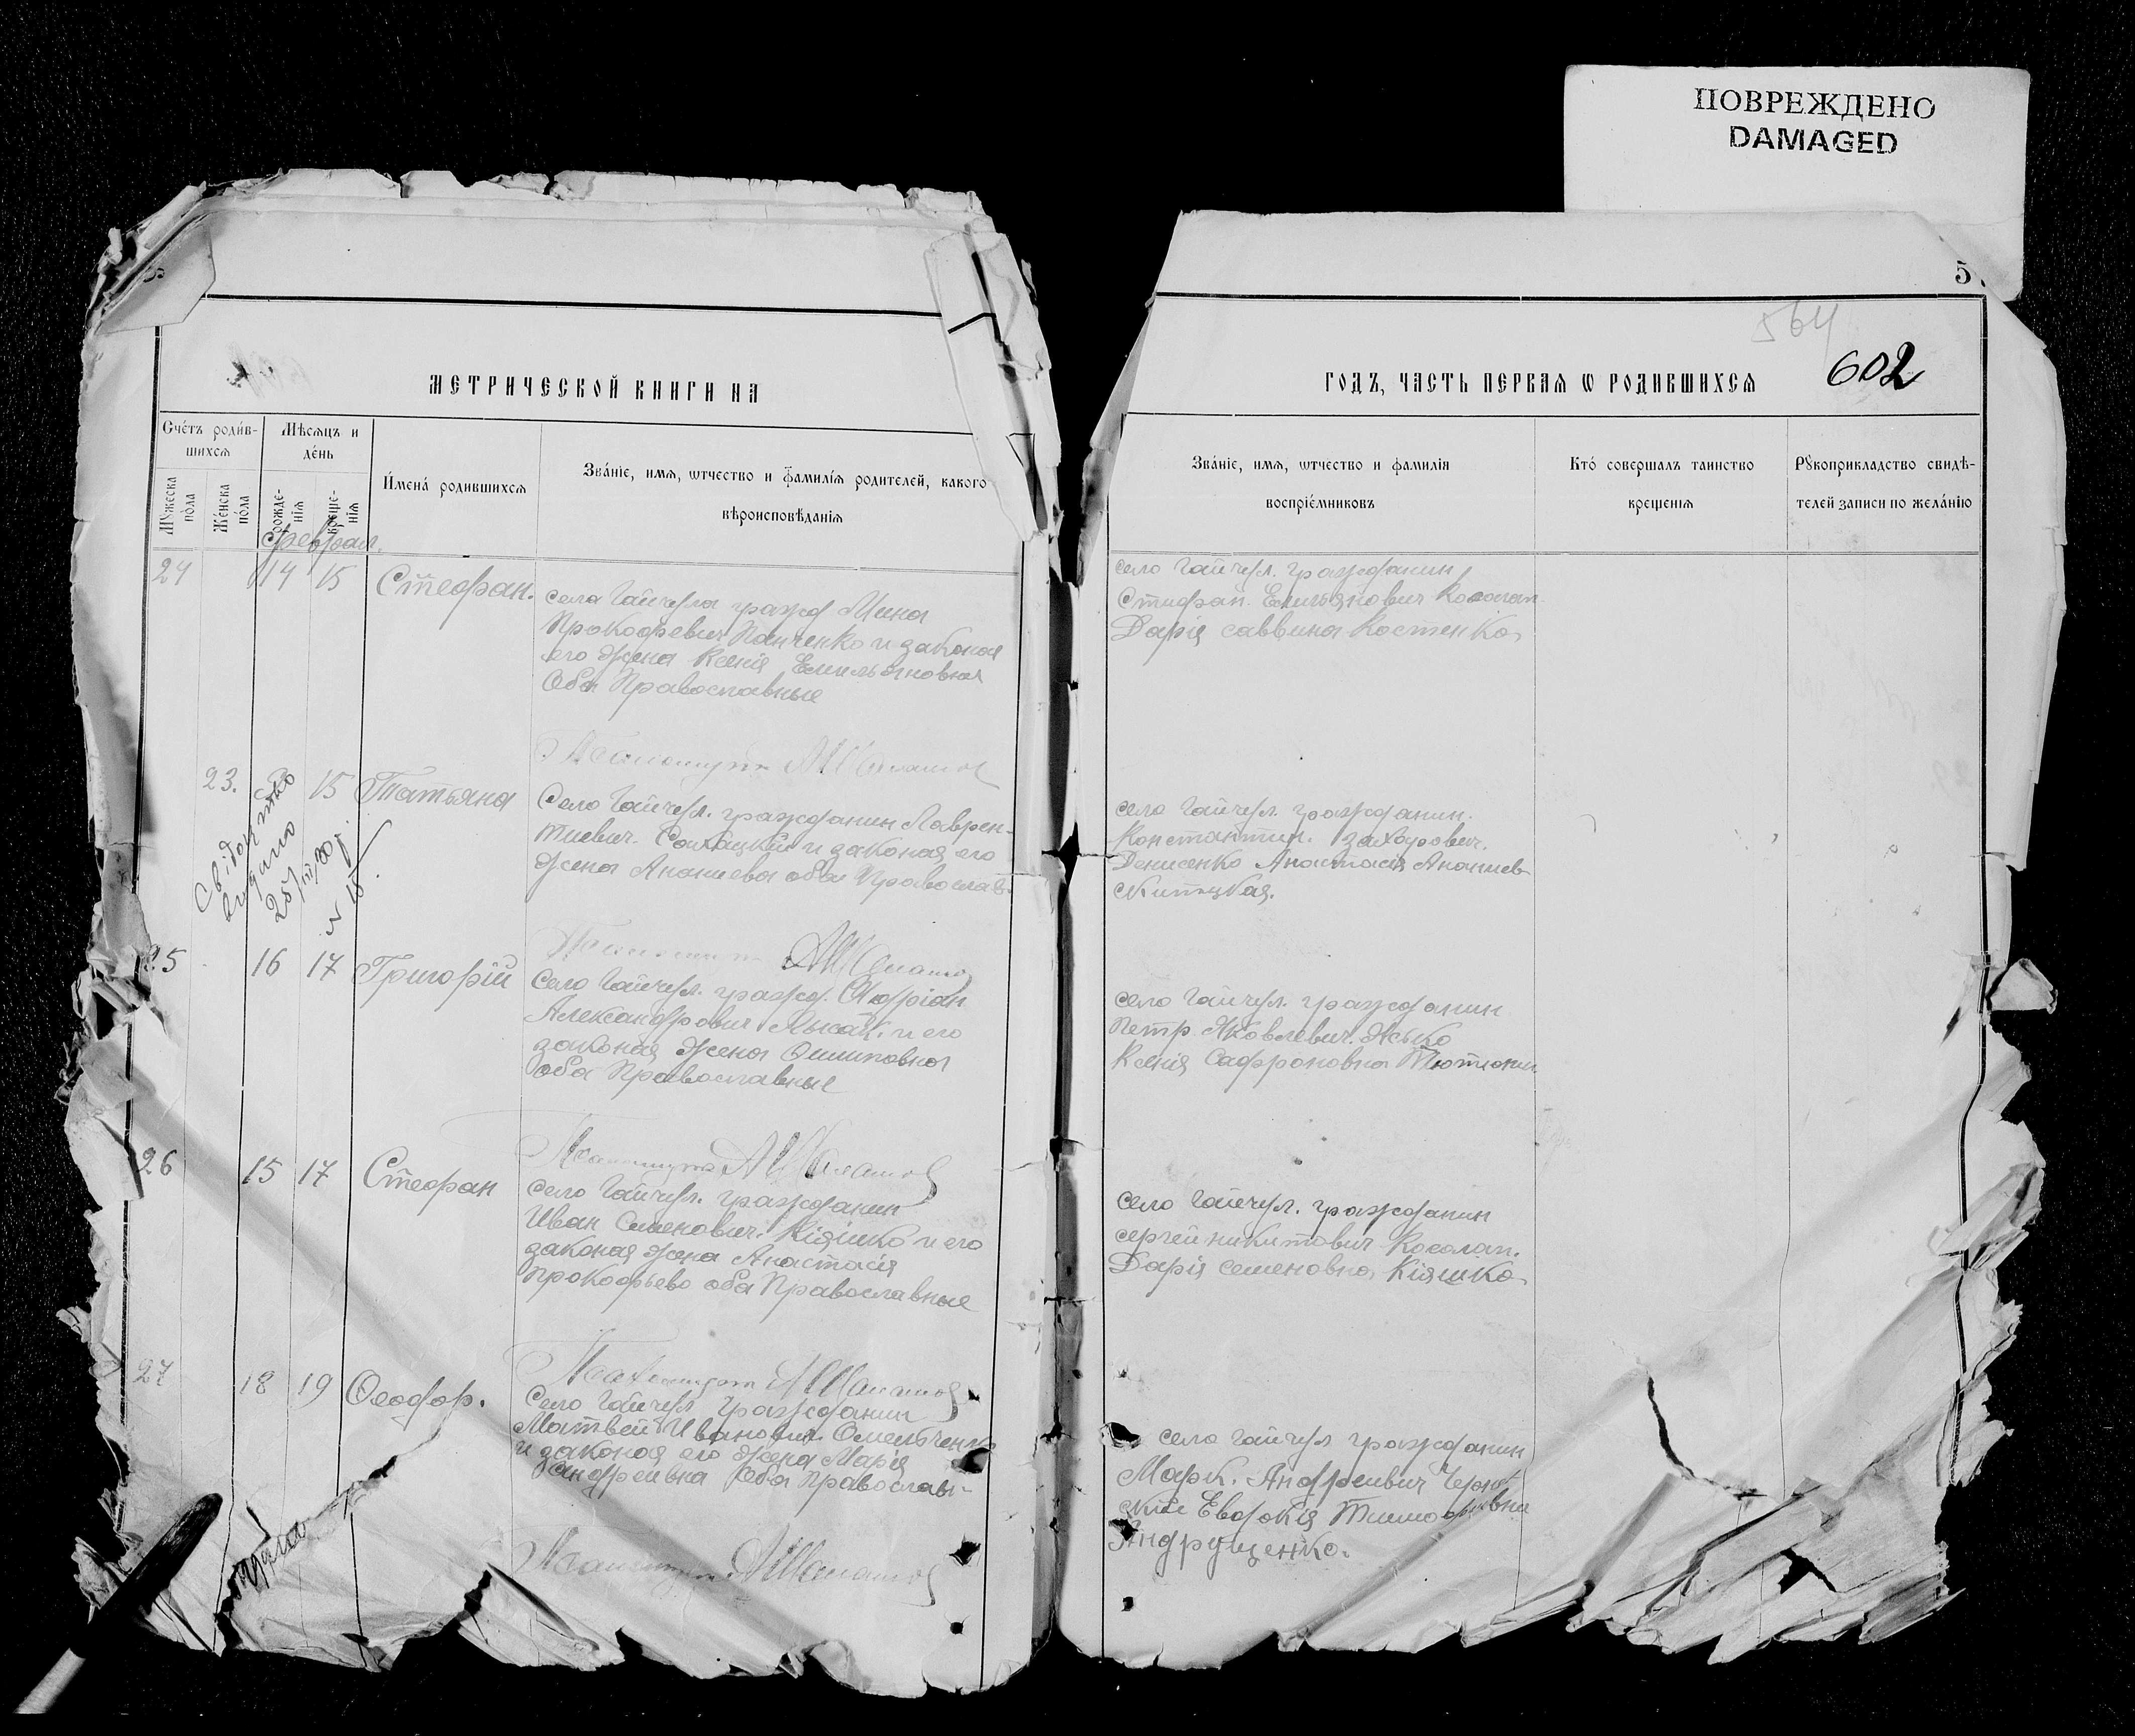 ПОВРЕЖДЕНО
DAMAGED
5
5
564
602
МЕТРИЧЕСКОЙ КНИГИ НА
ГОДЪ, ЧАСТЬ ПЕРВАЯ Ѡ РОДИВШИХСЯ
Сче́тъ роди́в-
шихсѧ
Мѣсѧцъ и
де́нь
Мꙋжеска
по́ла
Же́нска
по́ла
рожде-
нїѧ
креще-
нїѧ
И́мена́ родившихсѧ
Зва́нїе, имѧ, ѿчество и фамилїѧ родителей, какого
вѣроисповѣданїѧ
Зва́нїе, имѧ, ѿчество и фамилїѧ
воспрїе́мниковъ
Кто́ совершалъ таинство
крещенїѧ
Рꙋкоприкладство свидѣ-
телей записи по жела́нїю
Феврал.
24 14 15 Стефан.
села Гайчула гражд Мина
Прокофевич Панченко и законая
его жена Ксенія Емильяновна
Оба Православные
село Гайчул. гражданин
Стефан. Емильянович Косолап
Дарія саввина Костенко
23. 15 Татьяна
Село Гайчул. гражданин Лаврен-
тиевич. и законая его
жена Ананиева оба Православ.
село Гайчул. гражданин.
Константин. Захарович.
Денисенко Анастасія Ананиев
Свідоцтво
видано
25/III 30 р.
№ 18
25 16 17 Григорій
Село Гайчул. гражд.
Александрович Лысак. и его
законая жена Осиповна
оба Православные
село Гайчул. гражданин
Петр Яковлевич.
Ксенія Сафроновна Тютюник
26 15 17 Стефан
село Гайчул. гражданин
Иван Семенович. Кіяшко и его
законая жена Анастасія
Прокофьево оба Православные
село Гайчул. гражданин
сергей никитович Косолап.
Дарія семеновна Кіяшко
27 18 19 Феодор.
Село Гайчул гражданин
Матвей Иванович Омельченко
и законая его жена Марія
андреивна Оба Православн-
село Гайчул гражданин
Марк. Андреивич
Евдокія
Андрущенко.